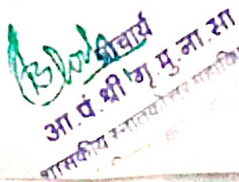 प्राचार्य
आ.पं.श्री गृ.मु.ना.सा
शासकीय स्नातकोत्तर महावि